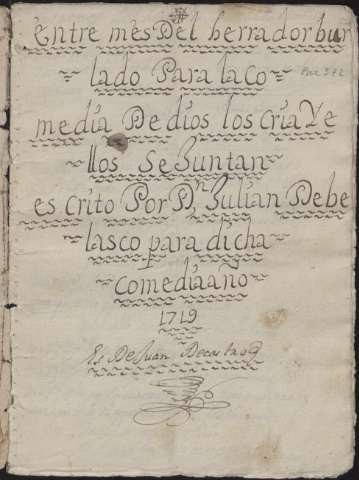 entre mes Del herrador bur
lado Para la co
media De dios los cria Ye
llos se Juntan
es crito Por Dn Julian Debe
lasco para dicha
comedia año
1719
Es De Juan Decastro